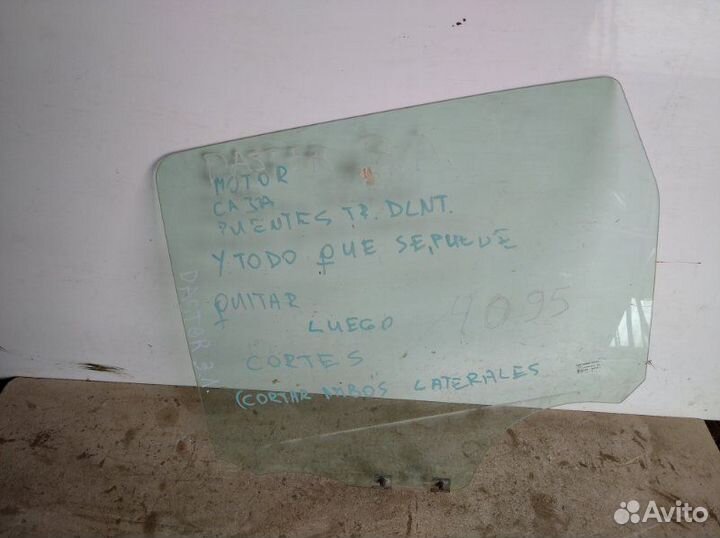 MOTOR
CAJA
PUENTES TP. DLNT.
Y TODO QUE SE PUEDE
QUITAR
LUEGO
4095
CORTES
(CORTAR AMBOS LATERALES
Avito